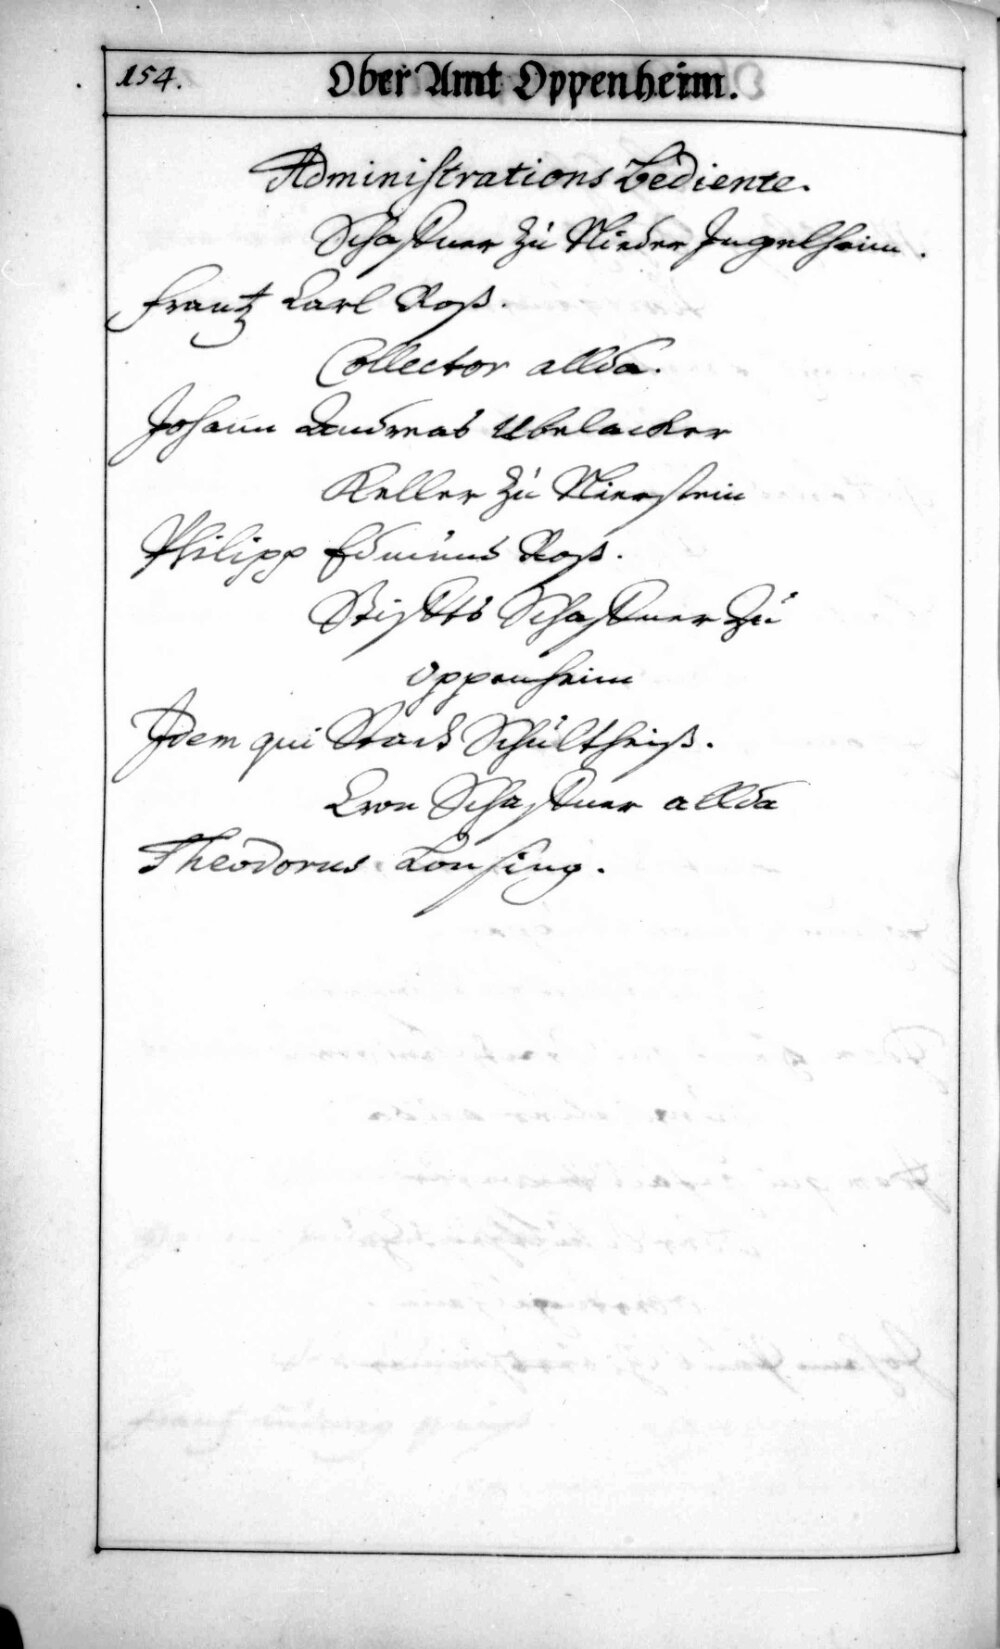 154.
Ober Amt Oppenheim.
Administrations Bediente.
Schaffner zu Nieder Ingelheim.
Frantz Carl Roß.
Collector allda.
Johann Andreas Ubelacker
Keller zu Nierstein
Philipp Edmund Roß.
Stiffts Schaffner zu
Oppenheim
Idem qui Stadt Schultheiß.
Cron Schaffner allda
Theodorus Lonsing.